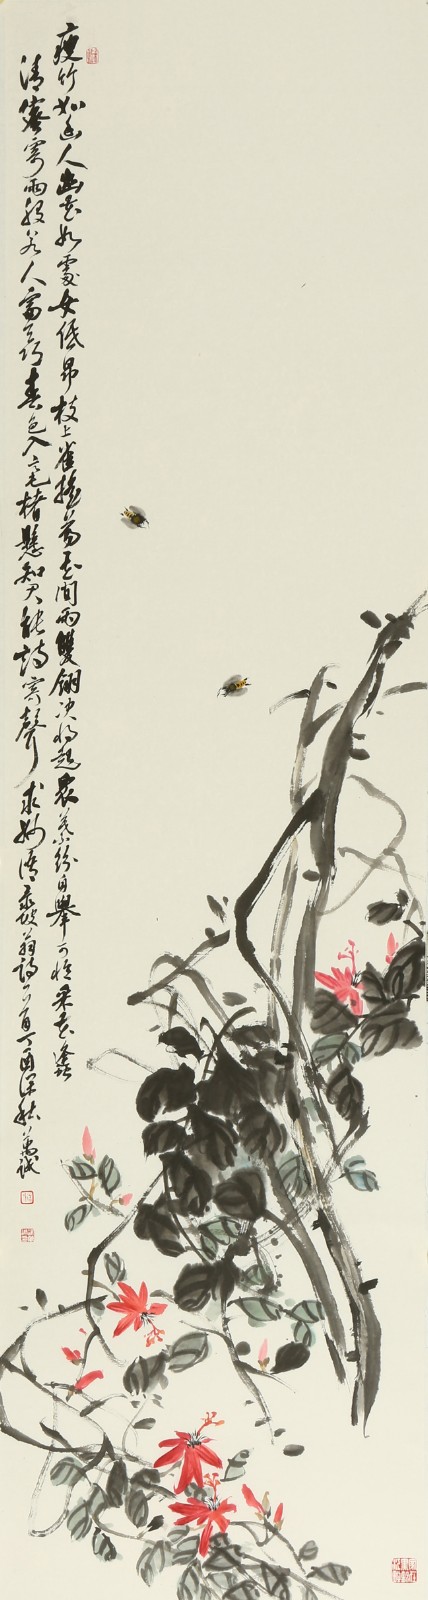 瘦竹如幽人幽花如處女低昂枝上雀搖蕩花間雨雙翎決將起眾葉紛自舉可憐采花蜂
清蜜寄兩股若人富天巧春色入毫楮懸知君能詩寄聲求妙語彔坡翁詩一首丁酉深秋萬誠